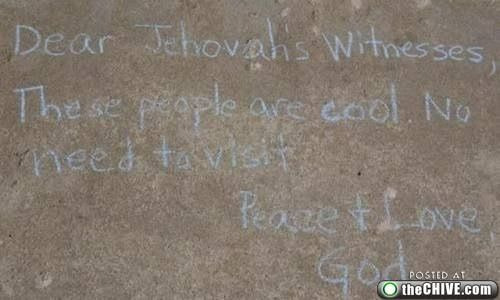 Dear Jehovah's Witnesses,
These people are cool. No
need to visit
Peace + Love,
God
POSTED AT
theCHIVE.com